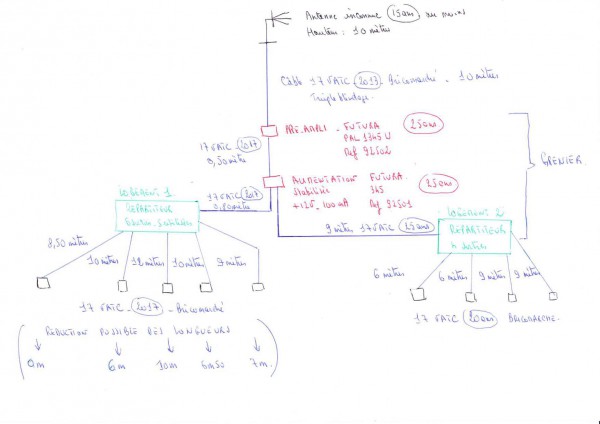 Antenne inconnue 15 ans au moins
Hauteur : 10 mètres
Câble 17 VATC 2017 - Bricomarché - 10 mètres
Triple blindage
PRÉ-AMPLI - FUTURA 25 ans
PAL 1345 U
Ref 92502
17 VATC 2017
0,50 mètre
ALIMENTATION FUTURA
Stabilisée 345 25 ans
+12V - 100 mA Ref 92501
GRENIER
LOGEMENT 1
17 VATC 2017
0,80 mètre
RÉPARTITEUR
5 sorties
LOGEMENT 2
RÉPARTITEUR
4 sorties
9 mètres 17 VATC 25 ans
8,50 mètres
10 mètres 12 mètres 10 mètres 9 mètres
6 mètres 6 mètres 9 mètres 9 mètres
17 VATC - 2017 - Bricomarché
17 VATC 20 ans BRICOMARCHE.
RÉDUCTION POSSIBLE DES LONGUEURS
6m 10m 5m50 7m.